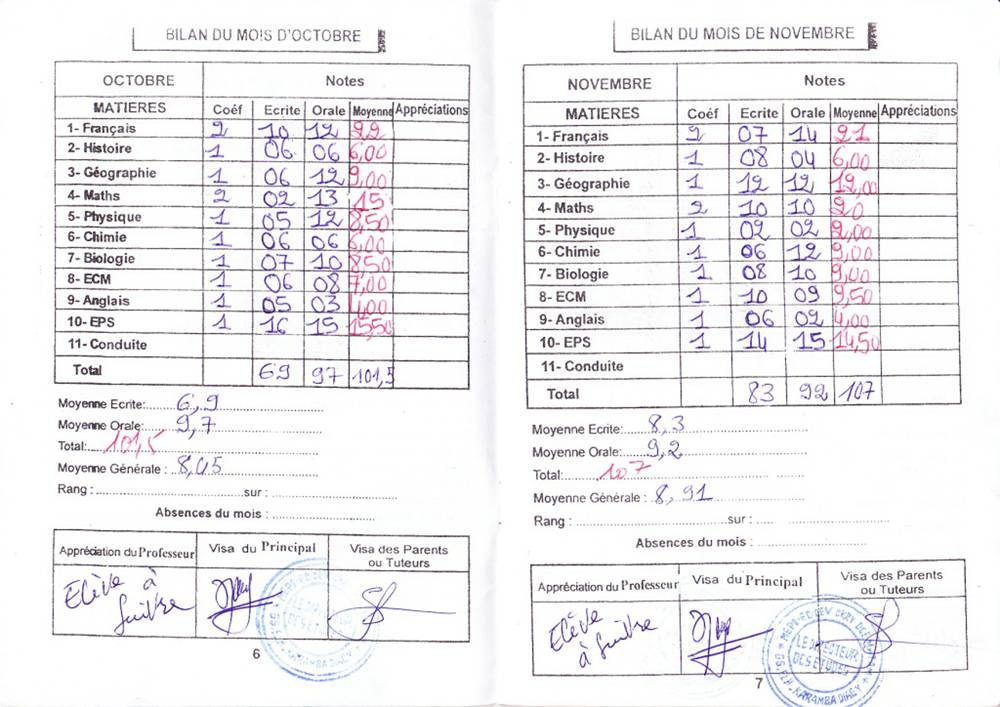 BILAN DU MOIS D'OCTOBRE
OCTOBRE Notes
MATIERES Coéf Ecrite Orale Moyenne Appréciations
1- Français 2 10 12 22
2- Histoire 1 06 06 6,00
3- Géographie 1 06 12 9,00
4- Maths 2 02 13 15
5- Physique 1 05 12 8,50
6- Chimie 1 06 06 6,00
7- Biologie 1 07 10 8,50
8- ECM 1 06 08 7,00
9- Anglais 1 05 03 4,00
10- EPS 1 16 15 15,50
11- Conduite
Total 69 97 101,5
Moyenne Ecrite: 6,9
Moyenne Orale: 9,7
Total: 101,5
Moyenne Générale : 8,45
Rang : sur :
Absences du mois :
Appréciation du Professeur Visa du Principal Visa des Parents ou Tuteurs
Elève à suivre
6
BILAN DU MOIS DE NOVEMBRE
NOVEMBRE Notes
MATIERES Coéf Ecrite Orale Moyenne Appréciations
1- Français 2 07 14 21
2- Histoire 1 08 04 6,00
3- Géographie 1 12 12 12,00
4- Maths 2 10 10 20
5- Physique 1 02 02 2,00
6- Chimie 1 06 12 9,00
7- Biologie 1 08 10 9,00
8- ECM 1 10 09 9,50
9- Anglais 1 06 02 4,00
10- EPS 1 14 15 14,50
11- Conduite
Total 83 92 107
Moyenne Ecrite: 8,3
Moyenne Orale: 9,2
Total: 107
Moyenne Générale : 8,91
Rang : sur :
Absences du mois :
Appréciation du Professeur Visa du Principal Visa des Parents ou Tuteurs
Elève à suivre
LE DIRECTEUR DES ETUDES
KARAMBA DIABY
7